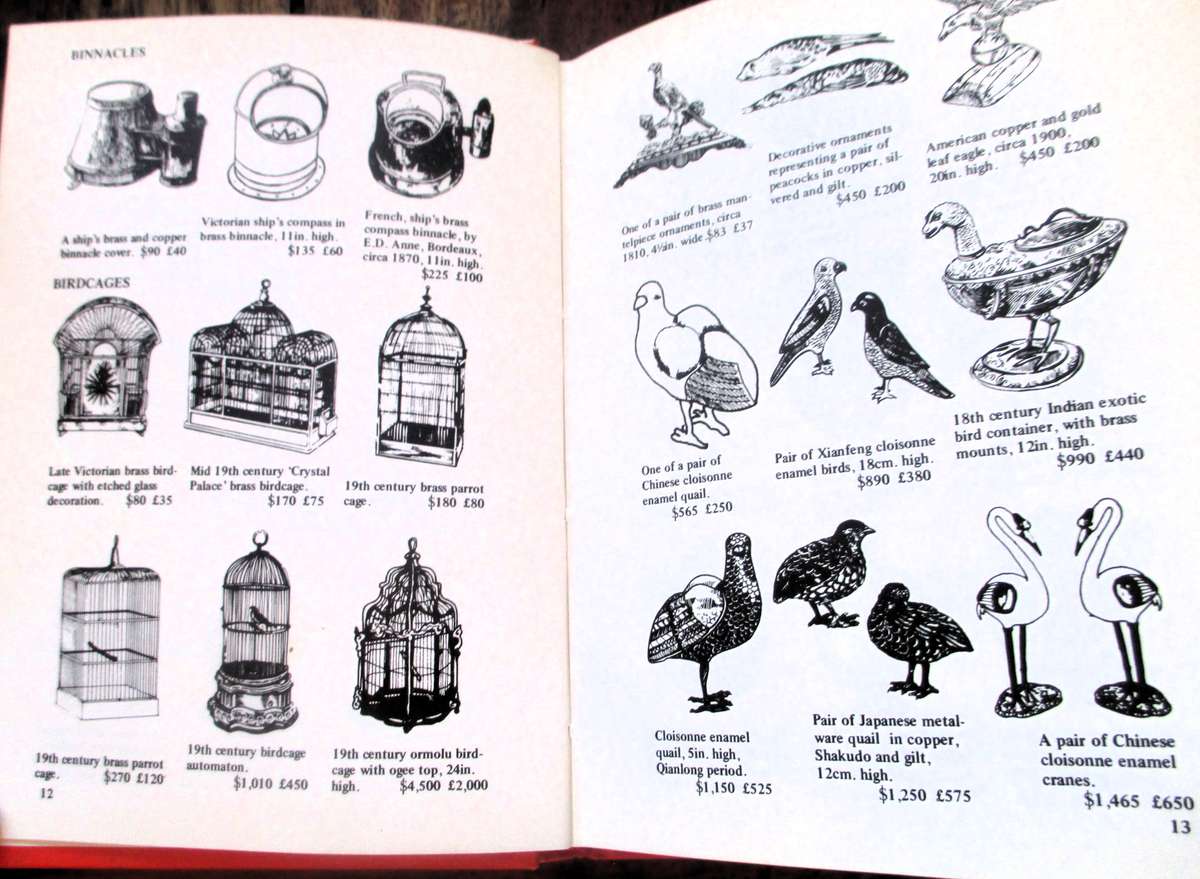 BINNACLES
A ship's brass and copper
binnacle cover. $90 £40
Victorian ship's compass in
brass binnacle, 11in. high.
$135 £60
French, ship's brass
compass binnacle, by
E.D. Anne, Bordeaux,
circa 1870, 11in. high.
$225 £100
BIRDCAGES
Late Victorian brass bird-
cage with etched glass
decoration. $80 £35
Mid 19th century 'Crystal
Palace' brass birdcage.
$170 £75
19th century brass parrot
cage. $180 £80
19th century brass parrot
cage. $270 £120
19th century birdcage
automaton.
$1,010 £450
19th century ormolu bird-
cage with ogee top, 24in.
high. $4,500 £2,000
12
One of a pair of brass man-
telpiece ornaments, circa
1810, 4½in. wide.$83 £37
Decorative ornaments
representing a pair of
peacocks in copper, sil-
vered and gilt.
$450 £200
American copper and gold
leaf eagle, circa 1900,
20in. high. $450 £200
One of a pair of
Chinese cloisonne
enamel quail.
$565 £250
Pair of Xianfeng cloisonne
enamel birds, 18cm. high.
$890 £380
18th century Indian exotic
bird container, with brass
mounts, 12in. high.
$990 £440
Cloisonne enamel
quail, 5in. high,
Qianlong period.
$1,150 £525
Pair of Japanese metal-
ware quail in copper,
Shakudo and gilt,
12cm. high.
$1,250 £575
A pair of Chinese
cloisonne enamel
cranes.
$1,465 £650
13